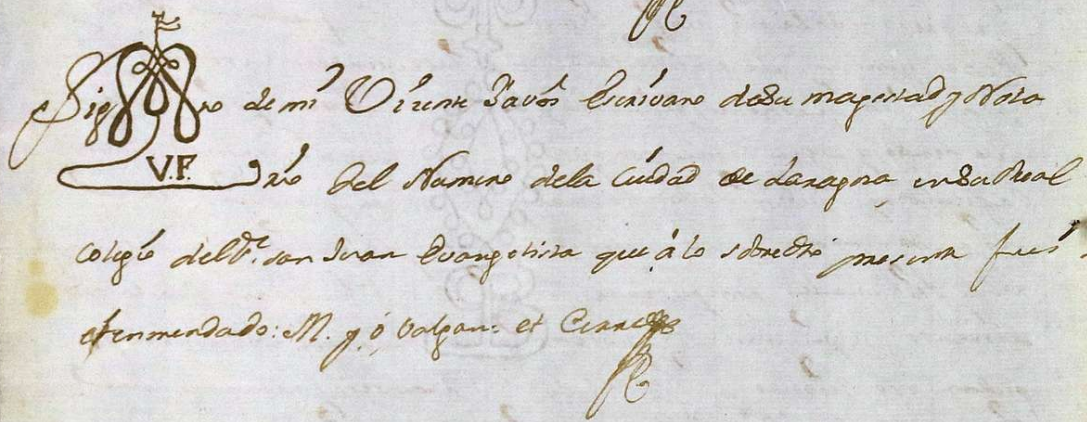 Sig no de mi Vicente Favos Escrivano de Su magestad y Nota
V.F. rio del Numero de la Ciudad de Zaragoza en Su Real
Colegio del Sr. san Juan Evangelista que á lo sobredho presente fui
el enmendado: M. y ó, valgan: et Cerre